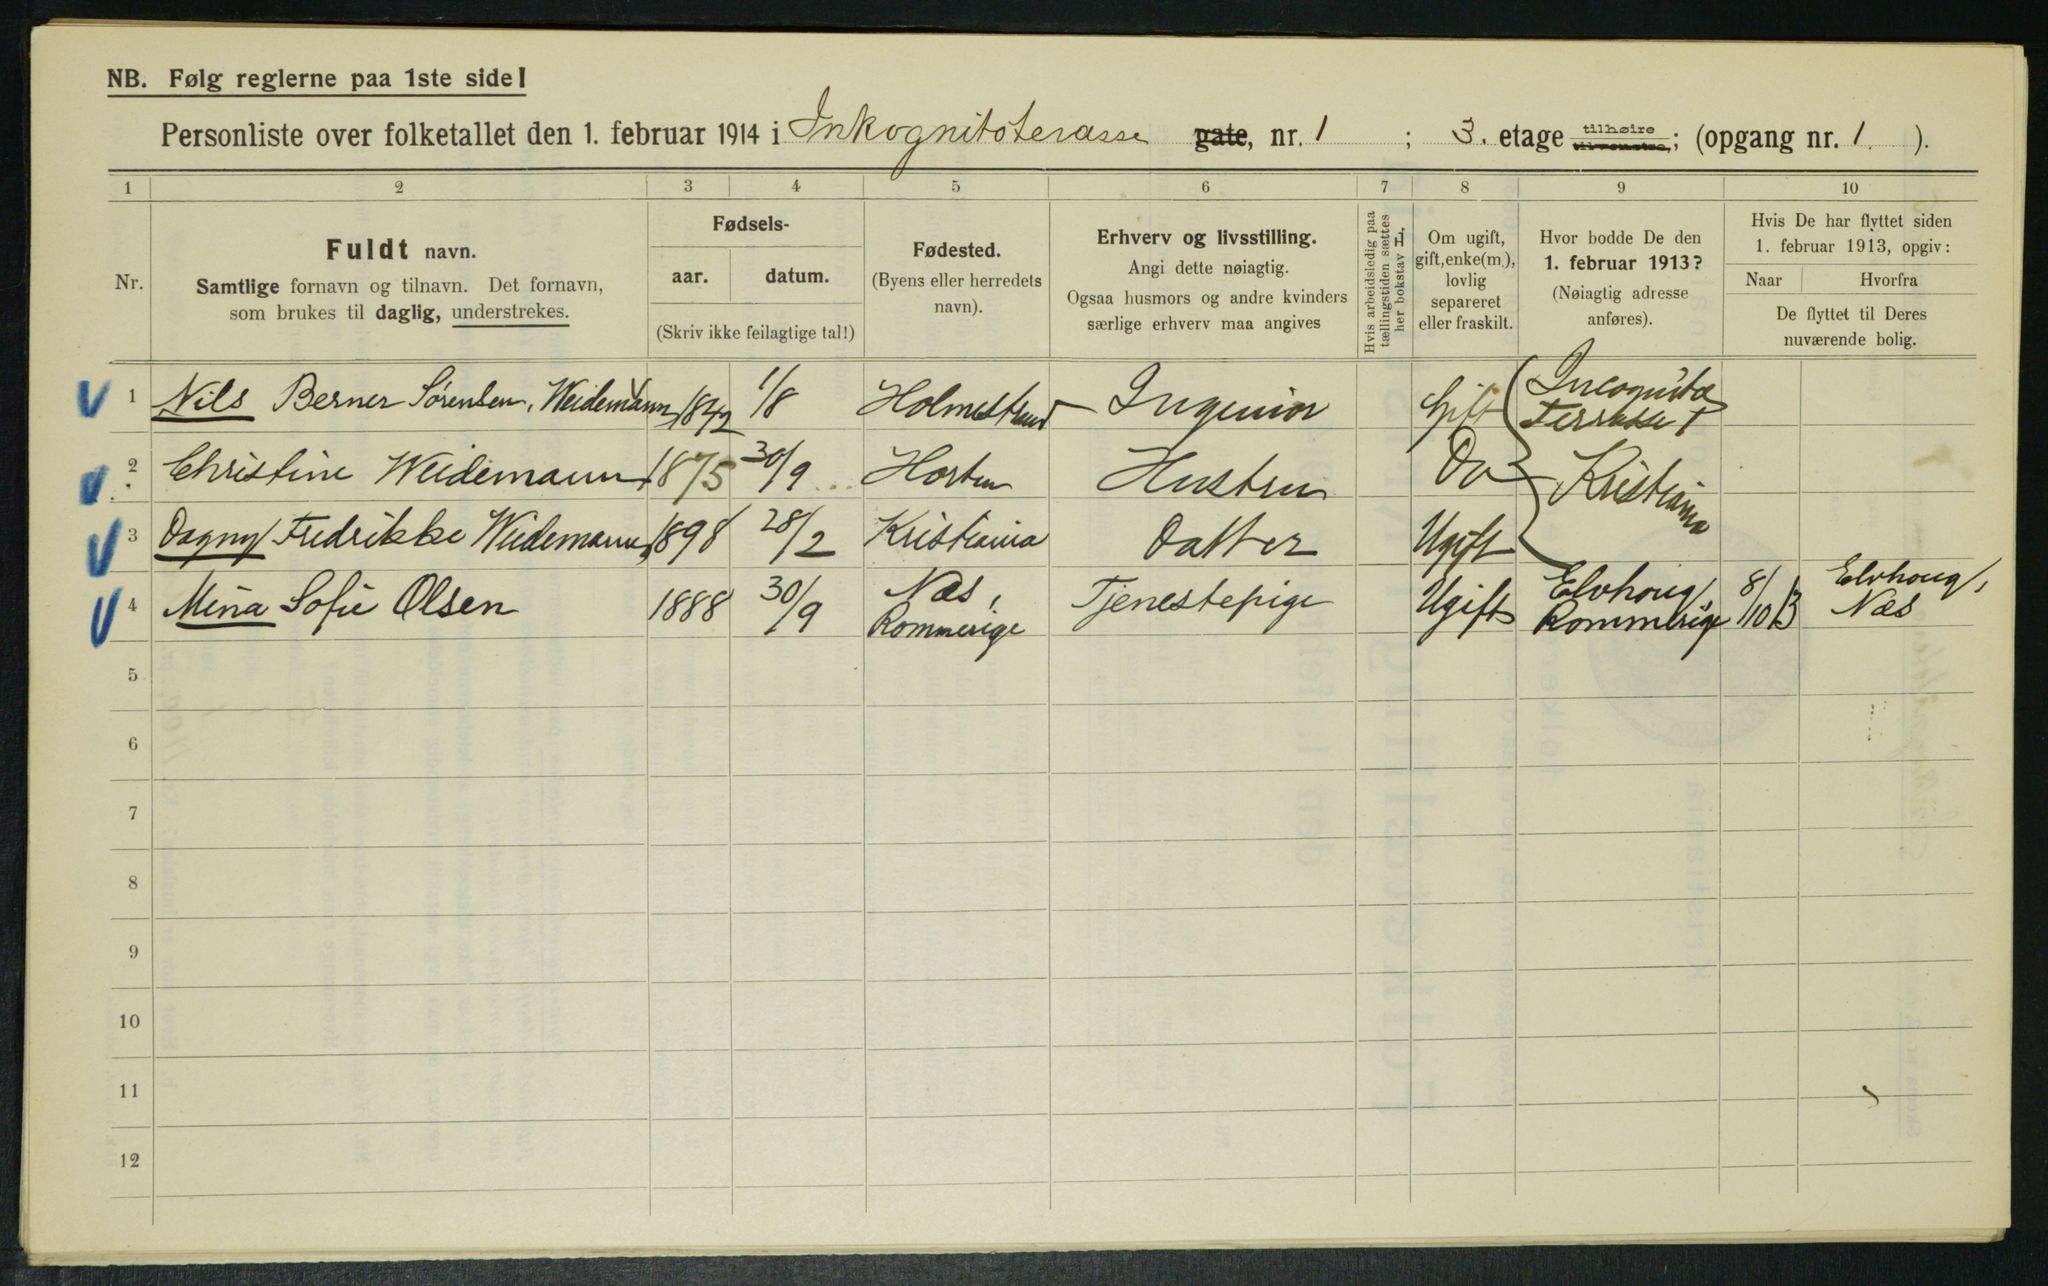 NB. Følg reglerne paa 1ste side!
Personliste over folketallet den 1. februar 1914 i Inkognitoterasse gate, nr. 1 ; 3. etage tilhøire tilvenstre; (opgang nr. 1. ).
1 2 3 4 5 6 7 8 9 10
Nr.
Fuldt navn.
Samtlige fornavn og tilnavn. Det fornavn,
som brukes til daglig, understrekes.
Fødsels-
aar. datum.
(Skriv ikke feilagtige tal!)
Fødested.
(Byens eller herredets
navn).
Erhverv og livsstilling.
Angi dette nøiagtig.
Ogsaa husmors og andre kvinders
særlige erhverv maa angives
Hvis arbeidsledig paa
tællingstiden sættes
her bokstav L.
Om ugift,
gift, enke(m.),
lovlig
separeret
eller fraskilt.
Hvor bodde De den
1. februar 1913?
(Nøiagtig adresse
anføres).
Hvis De har flyttet siden
1. februar 1913, opgiv:
Naar Hvorfra
De flyttet til Deres
nuværende bolig.
1 Nils Berner Sørensen, Weidemann 1842 1/8 Holmestrand Ingeniør Gift Incognito
Terrasse 1
2 Christine Weidemann 1875 30/9 Horten Hustru Do Kristiania
3 Dagny Fredrikke Weidemann 1898 28/2 Kristiania Datter Ugift
4 Mina Sofie Olsen 1888 30/9 Næs, Rommerige Tjenestepige Ugift Elvhoug, Rommerige 8/10 13 Elvhoug, Næs
5
6
7
8
9
10
11
12